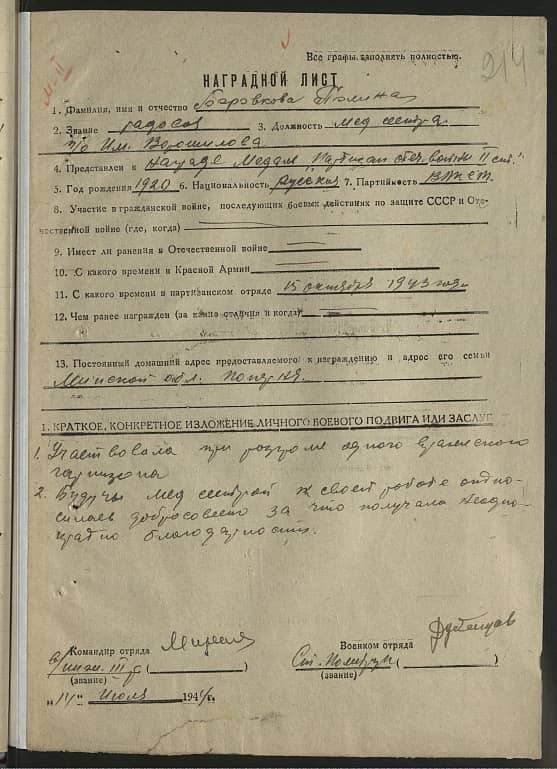 214
Все графы заполнять полностью.
НАГРАДНОЙ ЛИСТ
1. Фамилия, имя и отчество Боровкова Полина
2. Звание рядовой 3. Должность мед сестра
п/о Им. Ворошилова
4. Представлен к награде Медали "Партизан отеч. войны II ст."
5. Год рождения 1920 6. Национальность Русская 7. Партийность ВЛКСМ
8. Участие в гражданской войне, последующих боевых действиях по защите СССР и Оте-
чественной войне (где, когда)
9. Имеет ли ранения в Отечественной войне
10. С какого времени в Красной Армии
11. С какого времени в партизанском отряде 15 октября 1943 года
12. Чем ранее награжден (за какие отличия и когда)
13. Постоянный домашний адрес предоставляемого к награждению и адрес его семьи
Минской обл.
1. КРАТКОЕ, КОНКРЕТНОЕ ИЗЛОЖЕНИЕ ЛИЧНОГО БОЕВОГО ПОДВИГА ИЛИ ЗАСЛУГ
1. Участвовала при разгроме одного вражеского
гарнизона
2. Будучи мед сестрой к своей работе относилась
добросовестно за что получала неодно-
кратно благодарность.
Командир отряда
Военком отряда
(звание)
Ст. Политрук
(звание)
"14" Июля 1944г.